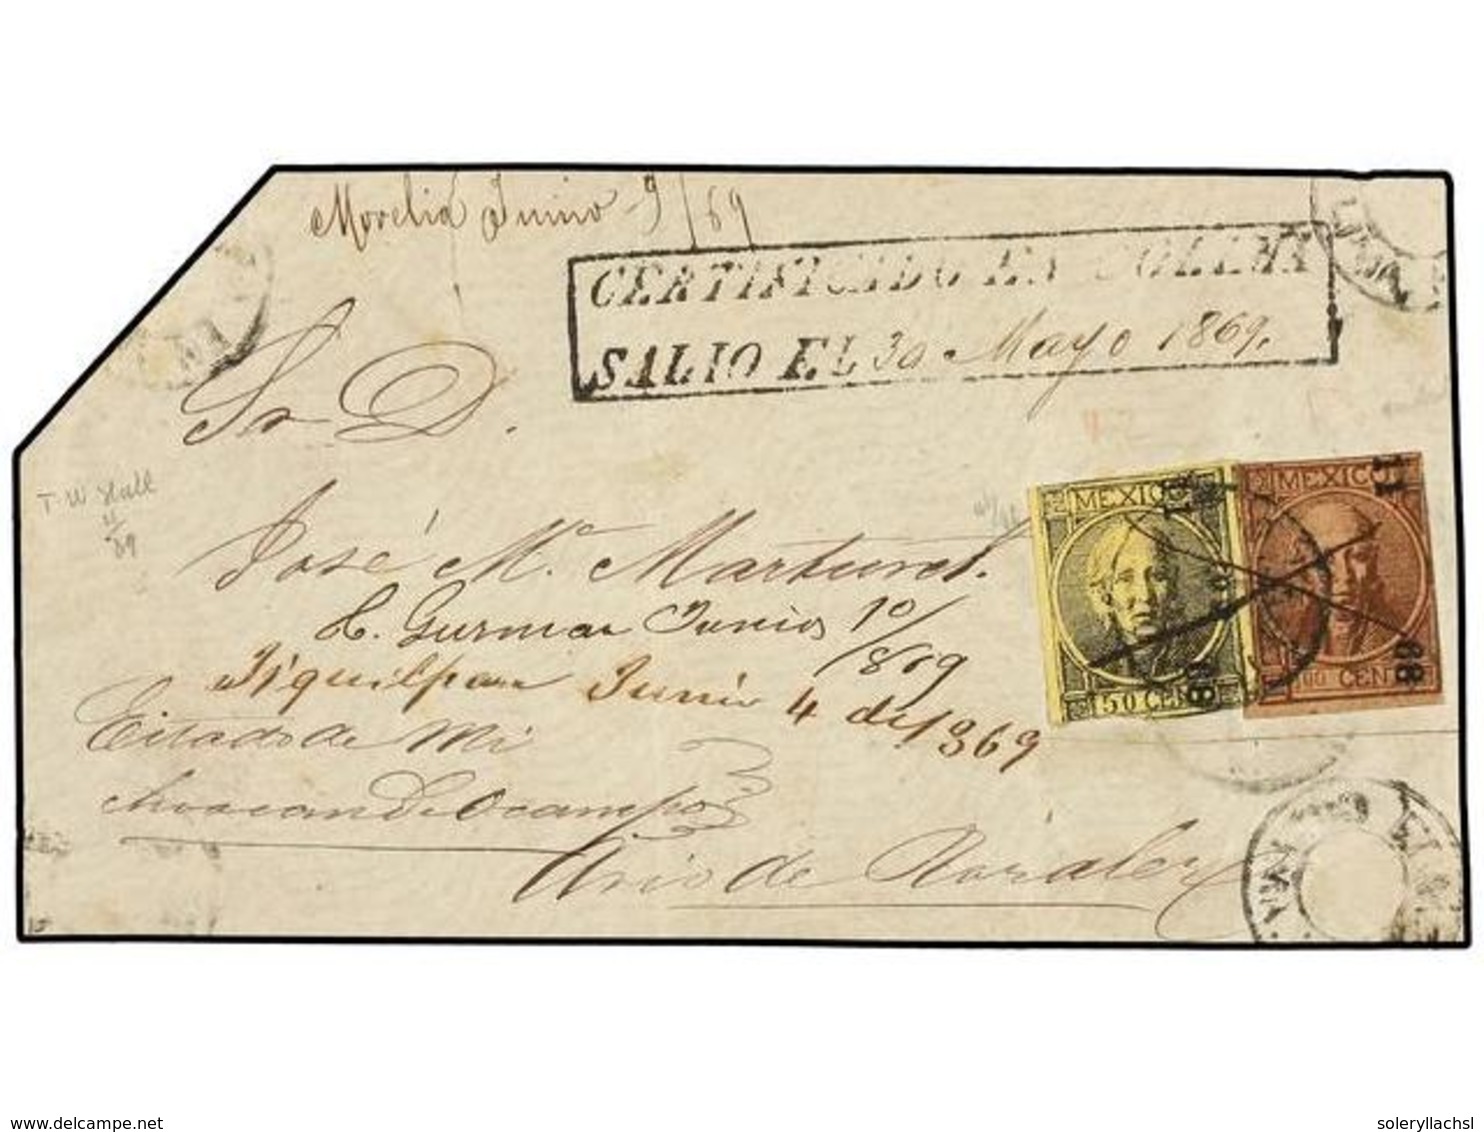 Morelia Junio 9/69
CERTIFICADO EN COLIMA
SALIO EL 30 Mayo 1869.
Sr D.
T. W Hall
11/89
José Ma. Marturet.
C. Guzman Junio 10/869
Jiquilpan Junio 4 de 1869
Estado de Mi
choacan de Ocampo
Ario de Rosales
MEXICO
50 CEN
MEXICO
11
68
100 CEN
www.delcampe.net
soleryllachsl